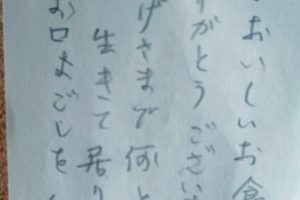 おいしいお食
りがとうござい
げさまで何と
生きて居り
お口よごしを